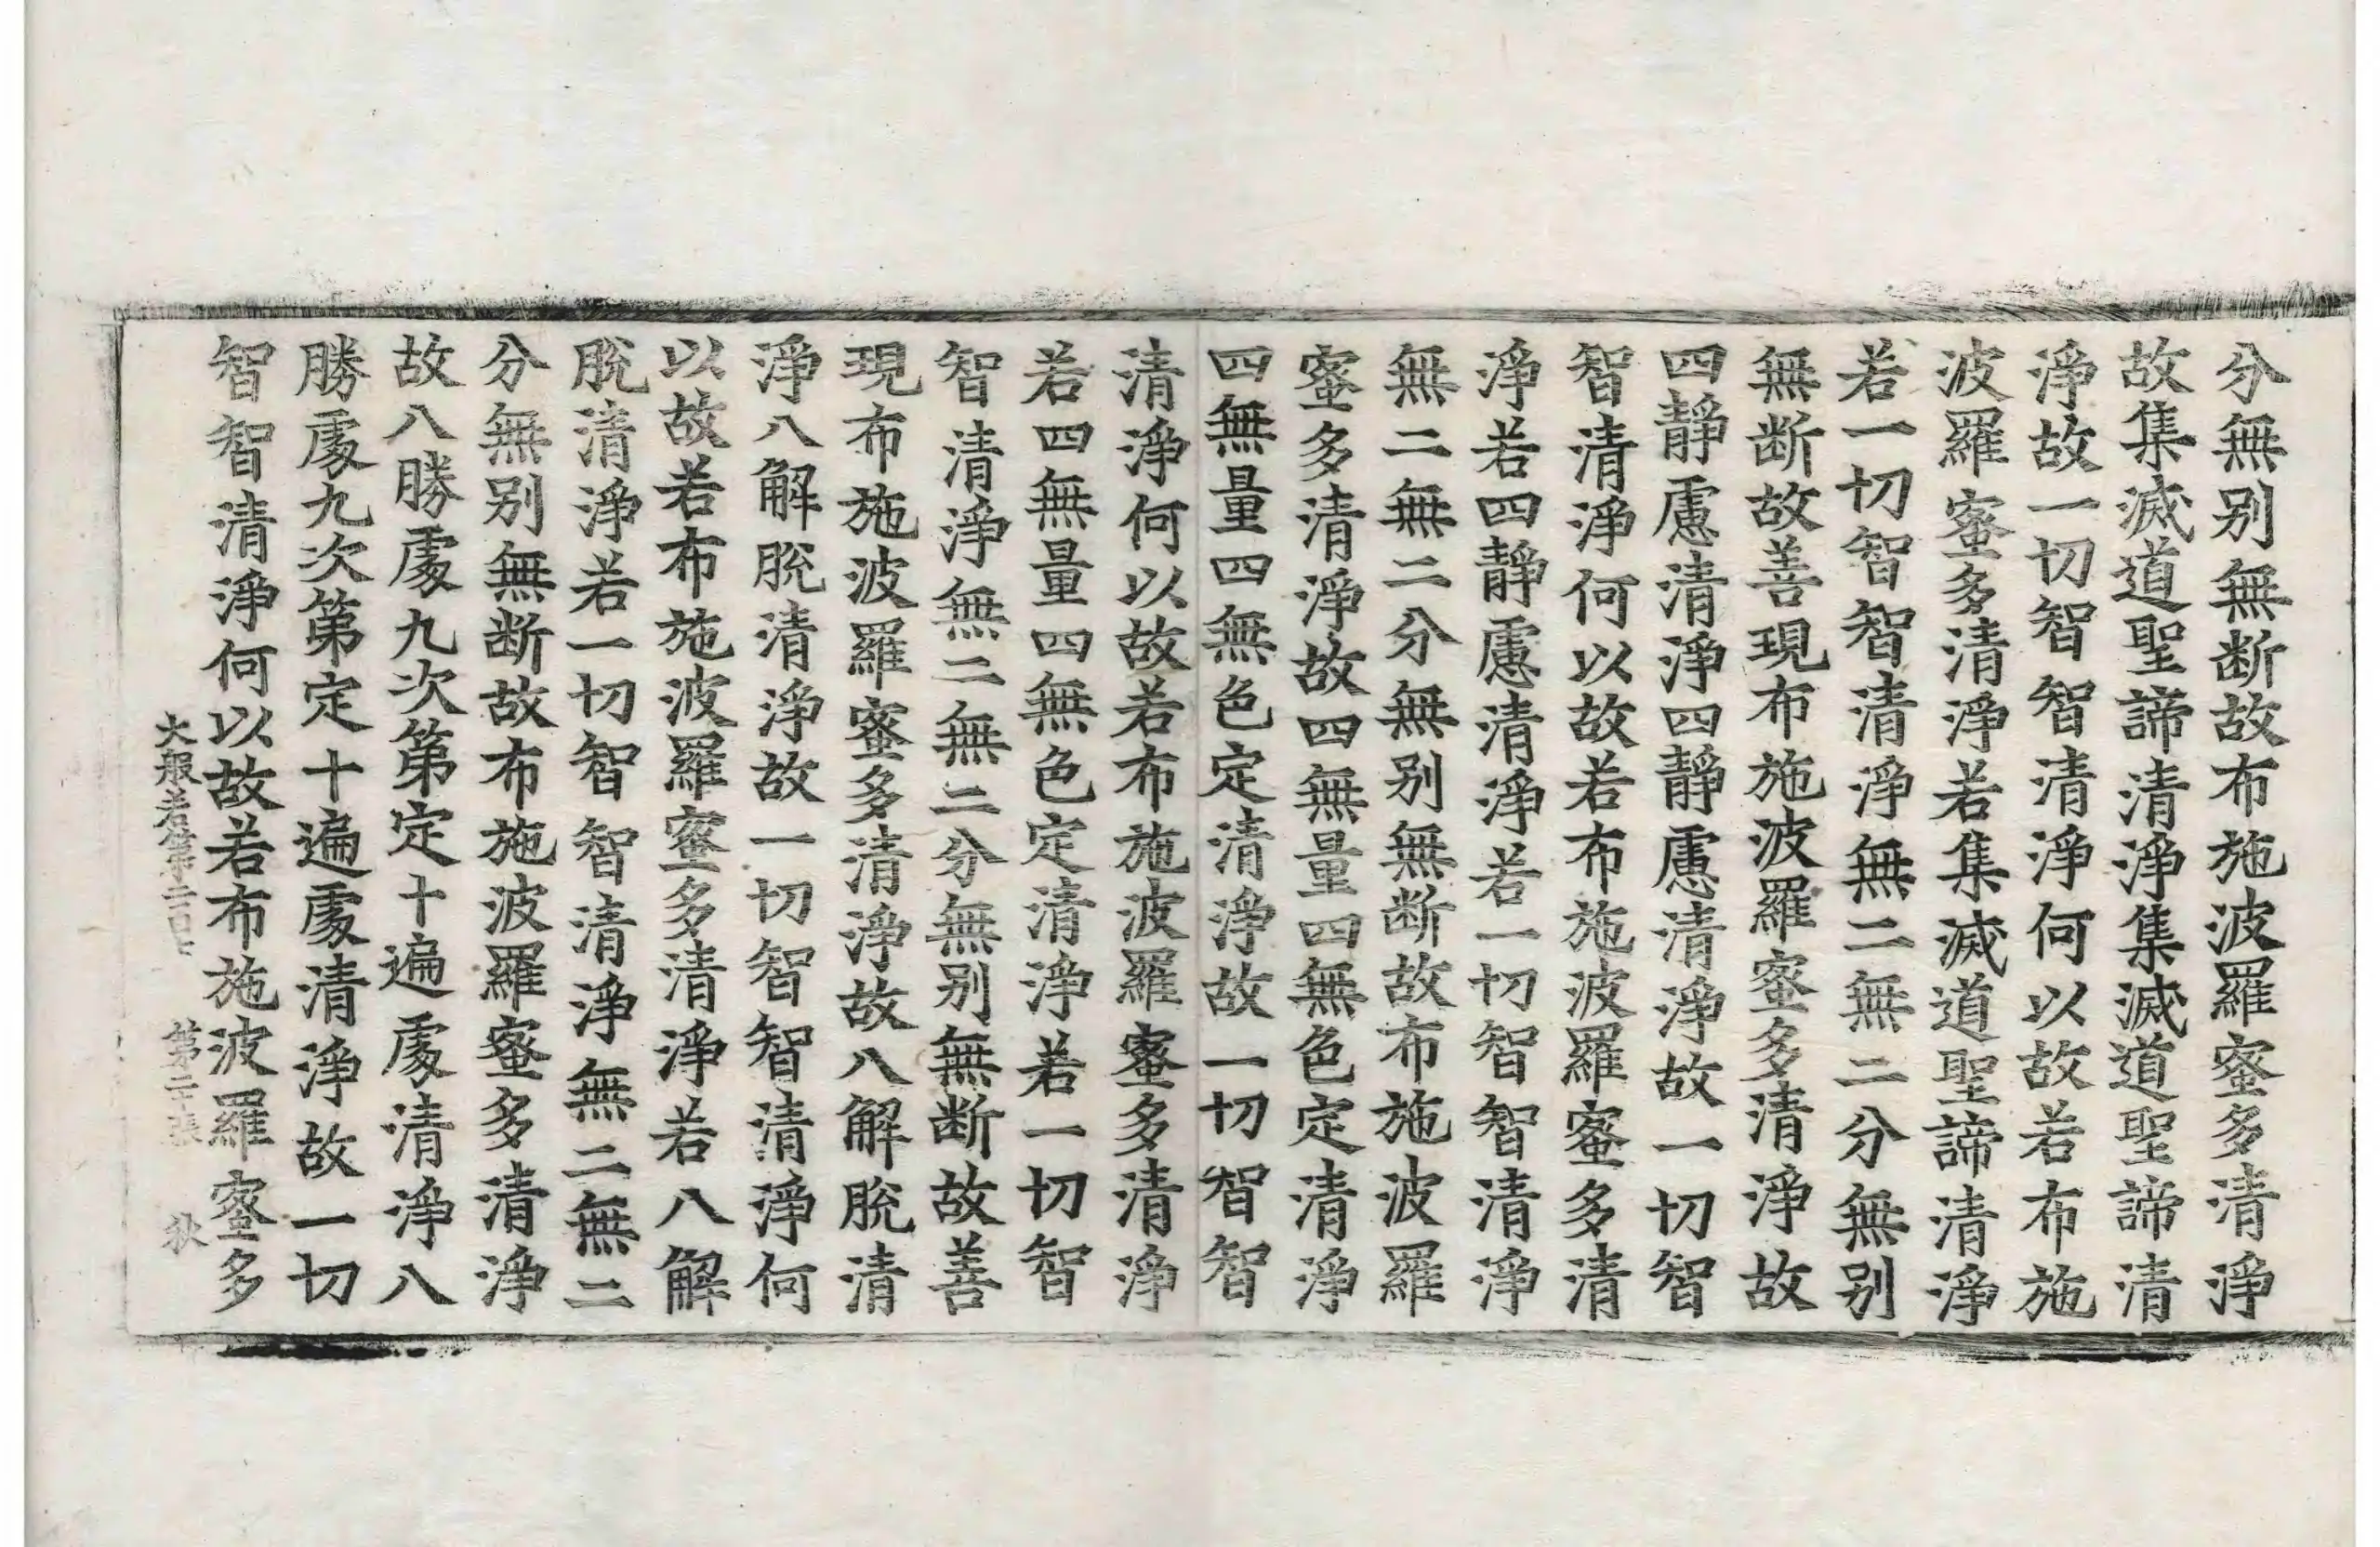 分無别無断故布施波羅蜜多清淨
故集滅道聖諦清淨集滅道聖諦清
淨故一切智智清淨何以故若布施
波羅蜜多清淨若集滅道聖諦清淨
若一切智智清淨無二無二分無别
無断故善現布施波羅蜜多清淨故
四靜慮清淨四靜慮清淨故一切智
智清淨何以故若布施波羅蜜多清
淨若四靜慮清淨若一切智智清淨
無二無二分無别無断故布施波羅
蜜多清淨故四無量四無色定清淨
四無量四無色定清淨故一切智智
清淨何以故若布施波羅蜜多清淨
若四無量四無色定清淨若一切智
智清淨無二無二分無别無断故善
現布施波羅蜜多清淨故八解脫清
淨八解脫清淨故一切智智清淨何
以故若布施波羅蜜多清淨若八解
脫清淨若一切智智清淨無二無二
分無别無断故布施波羅蜜多清淨
故八勝處九次第定十遍處清淨八
勝處九次第定十遍處清淨故一切
智智清淨何以故若布施波羅蜜多
大般若第二百 第二張 狄